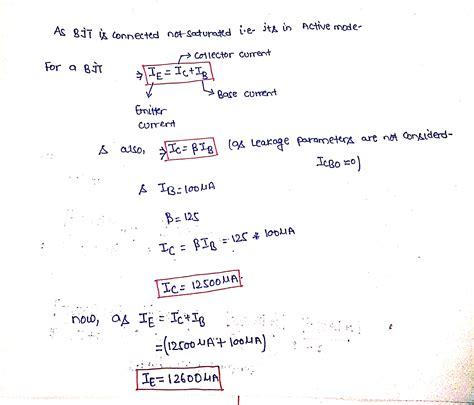 As BJT is connected not saturated i.e. its in Active mode-
→ Collector current
For a BJT ⇒ IE = IC + IB
→ Base current
Emitter
current
& also, ⇒ IC = βIB (as leakage parameters are not considerd-
ICBO = 0)
& IB = 100μA
β = 125
IC = βIB = 125 * 100μA
IC = 12500μA.
now, as IE = IC + IB
= (12500μA + 100μA)
IE = 12600μA